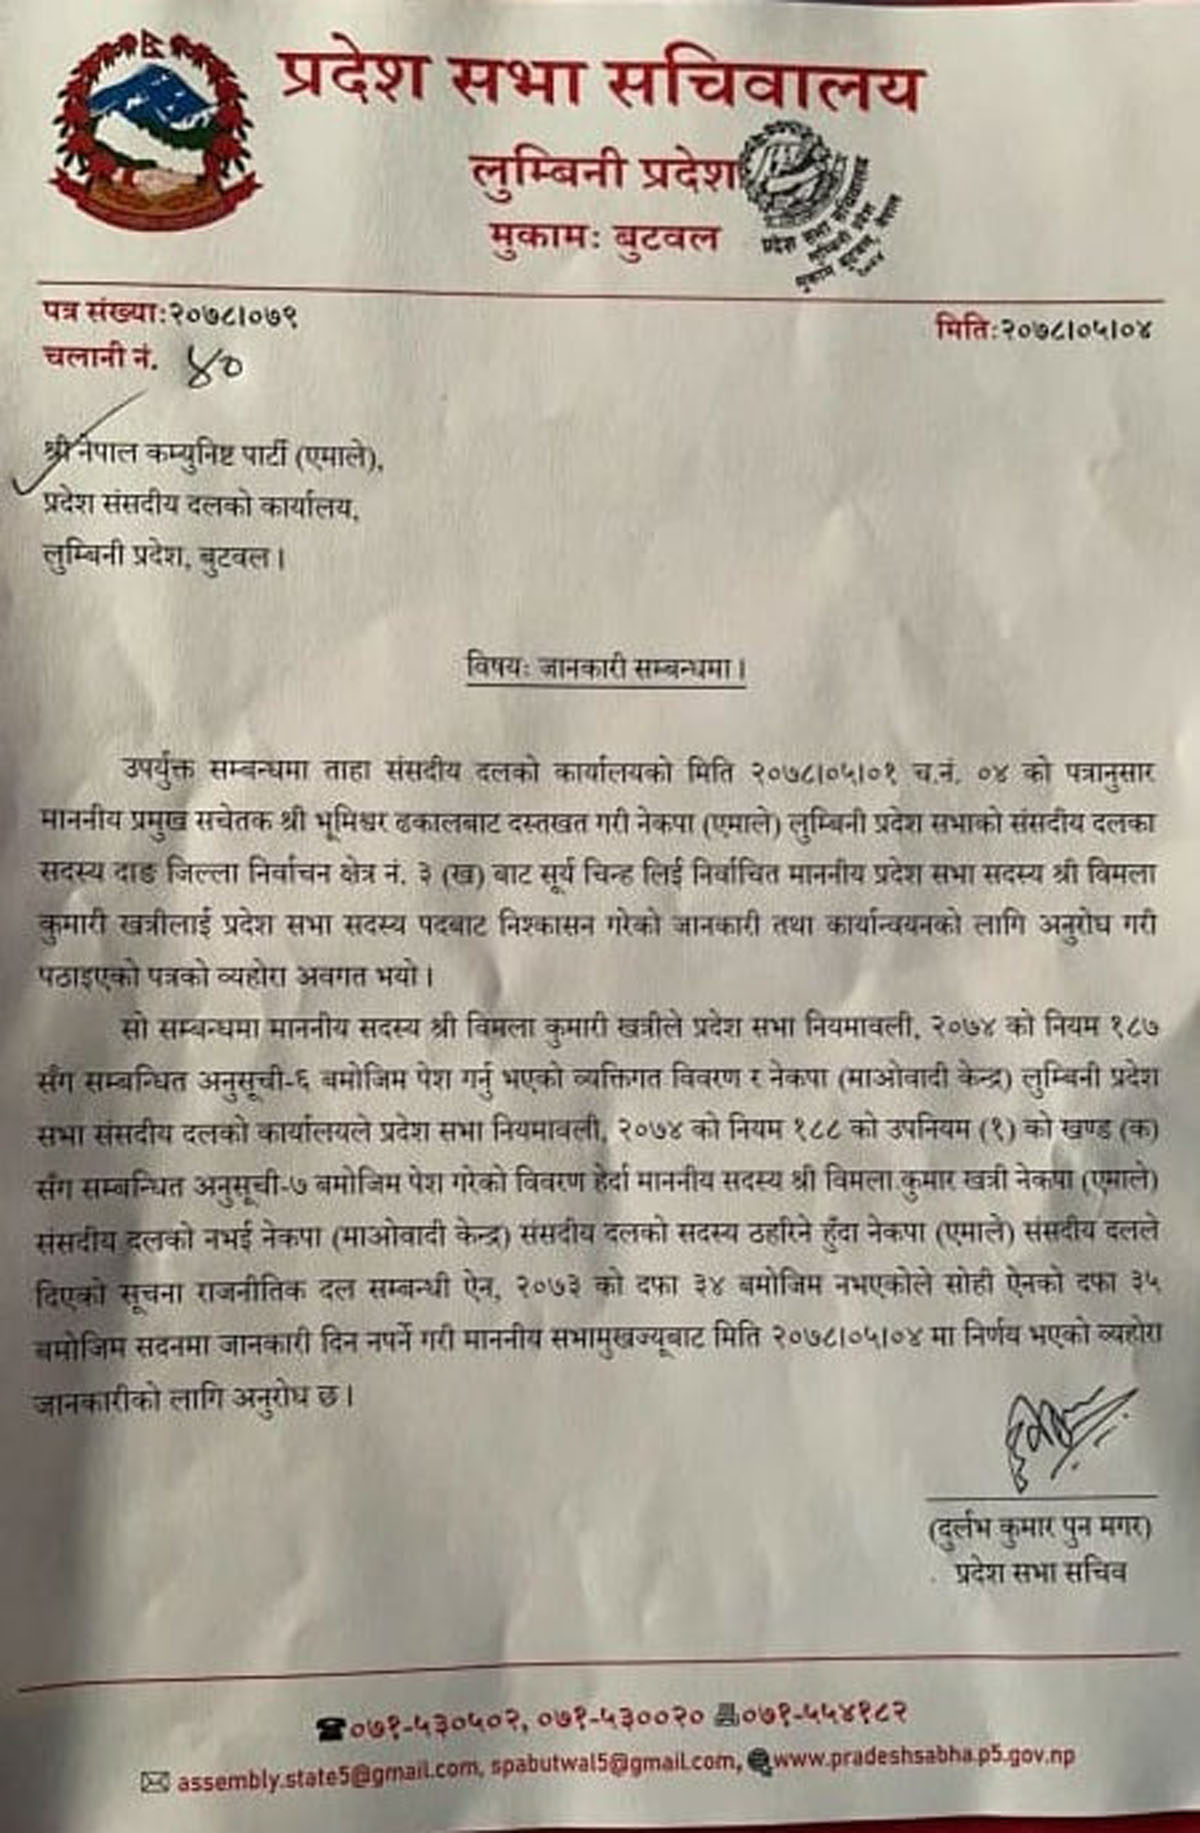 प्रदेश सभा सचिवालय
लुम्बिनी प्रदेश
मुकामः बुटवल
प्रदेश सभा सचिवालय
लुम्बिनी प्रदेश
मुकाम बुटवल, नेपाल
पत्र संख्या:२०७८।०७९
मिति:२०७८।०५।०४
चलानी नं. ४०
श्री नेपाल कम्युनिष्ट पार्टी (एमाले),
प्रदेश संसदीय दलको कार्यालय,
लुम्बिनी प्रदेश, बुटवल ।
विषयः जानकारी सम्बन्धमा ।
उपर्युक्त सम्बन्धमा ताहा संसदीय दलको कार्यालयको मिति २०७८।०५।०१ च.नं. ०४ को पत्रानुसार
माननीय प्रमुख सचेतक श्री भूमिश्वर ढकालबाट दस्तखत गरी नेकपा (एमाले) लुम्बिनी प्रदेश सभाको संसदीय दलका
सदस्य दाङ जिल्ला निर्वाचन क्षेत्र नं. ३ (ख) बाट सूर्य चिन्ह लिई निर्वाचित माननीय प्रदेश सभा सदस्य श्री विमला
कुमारी खत्रीलाई प्रदेश सभा सदस्य पदबाट निश्कासन गरेको जानकारी तथा कार्यान्वयनको लागि अनुरोघ गरी
पठाइएको पत्रको व्यहोरा अवगत भयो ।
सो सम्बन्धमा माननीय सदस्य श्री विमला कुमारी खत्रीले प्रदेश सभा नियमावली, २०७४ को नियम १८७
सँग सम्बन्धित अनुसूची-६ बमोजिम पेश गर्नु भएको व्यक्तिगत विवरण र नेकपा (माओवादी केन्द्र) लुम्बिनी प्रदेश
सभा संसदीय दलको कार्यालयले प्रदेश सभा नियमावली, २०७४ को नियम १८८ को उपनियम (१) को खण्ड (क)
सँग सम्बन्धित अनुसूची-७ बमोजिम पेश गरेको विवरण हेर्दा माननीय सदस्य श्री विमला कुमार खत्री नेकपा (एमाले)
संसदीय दलको नभई नेकपा (माओवादी केन्द्र) संसदीय दलको सदस्य ठहरिने हुँदा नेकपा (एमाले) संसदीय दलले
दिएको सूचना राजनीतिक दल सम्बन्धी ऐन, २०७३ को दफा ३४ बमोजिम नभएकोले सोही ऐनको दफा ३५
बमोजिम सदनमा जानकारी दिन नपर्ने गरी माननीय सभामुखज्यूबाट मिति २०७८।०५।०४ मा निर्णय भएको व्यहोरा
जानकारीको लागि अनुरोध छ ।
(दुर्लभ कुमार पुन मगर)
प्रदेश सभा सचिव
०७१-५३०५०२, ०७१-५३००२० ०७१-५५४१८२
assembly.state5@gmail.com, spabutwal5@gmail.com, www.pradeshsabha.p5.gov.np